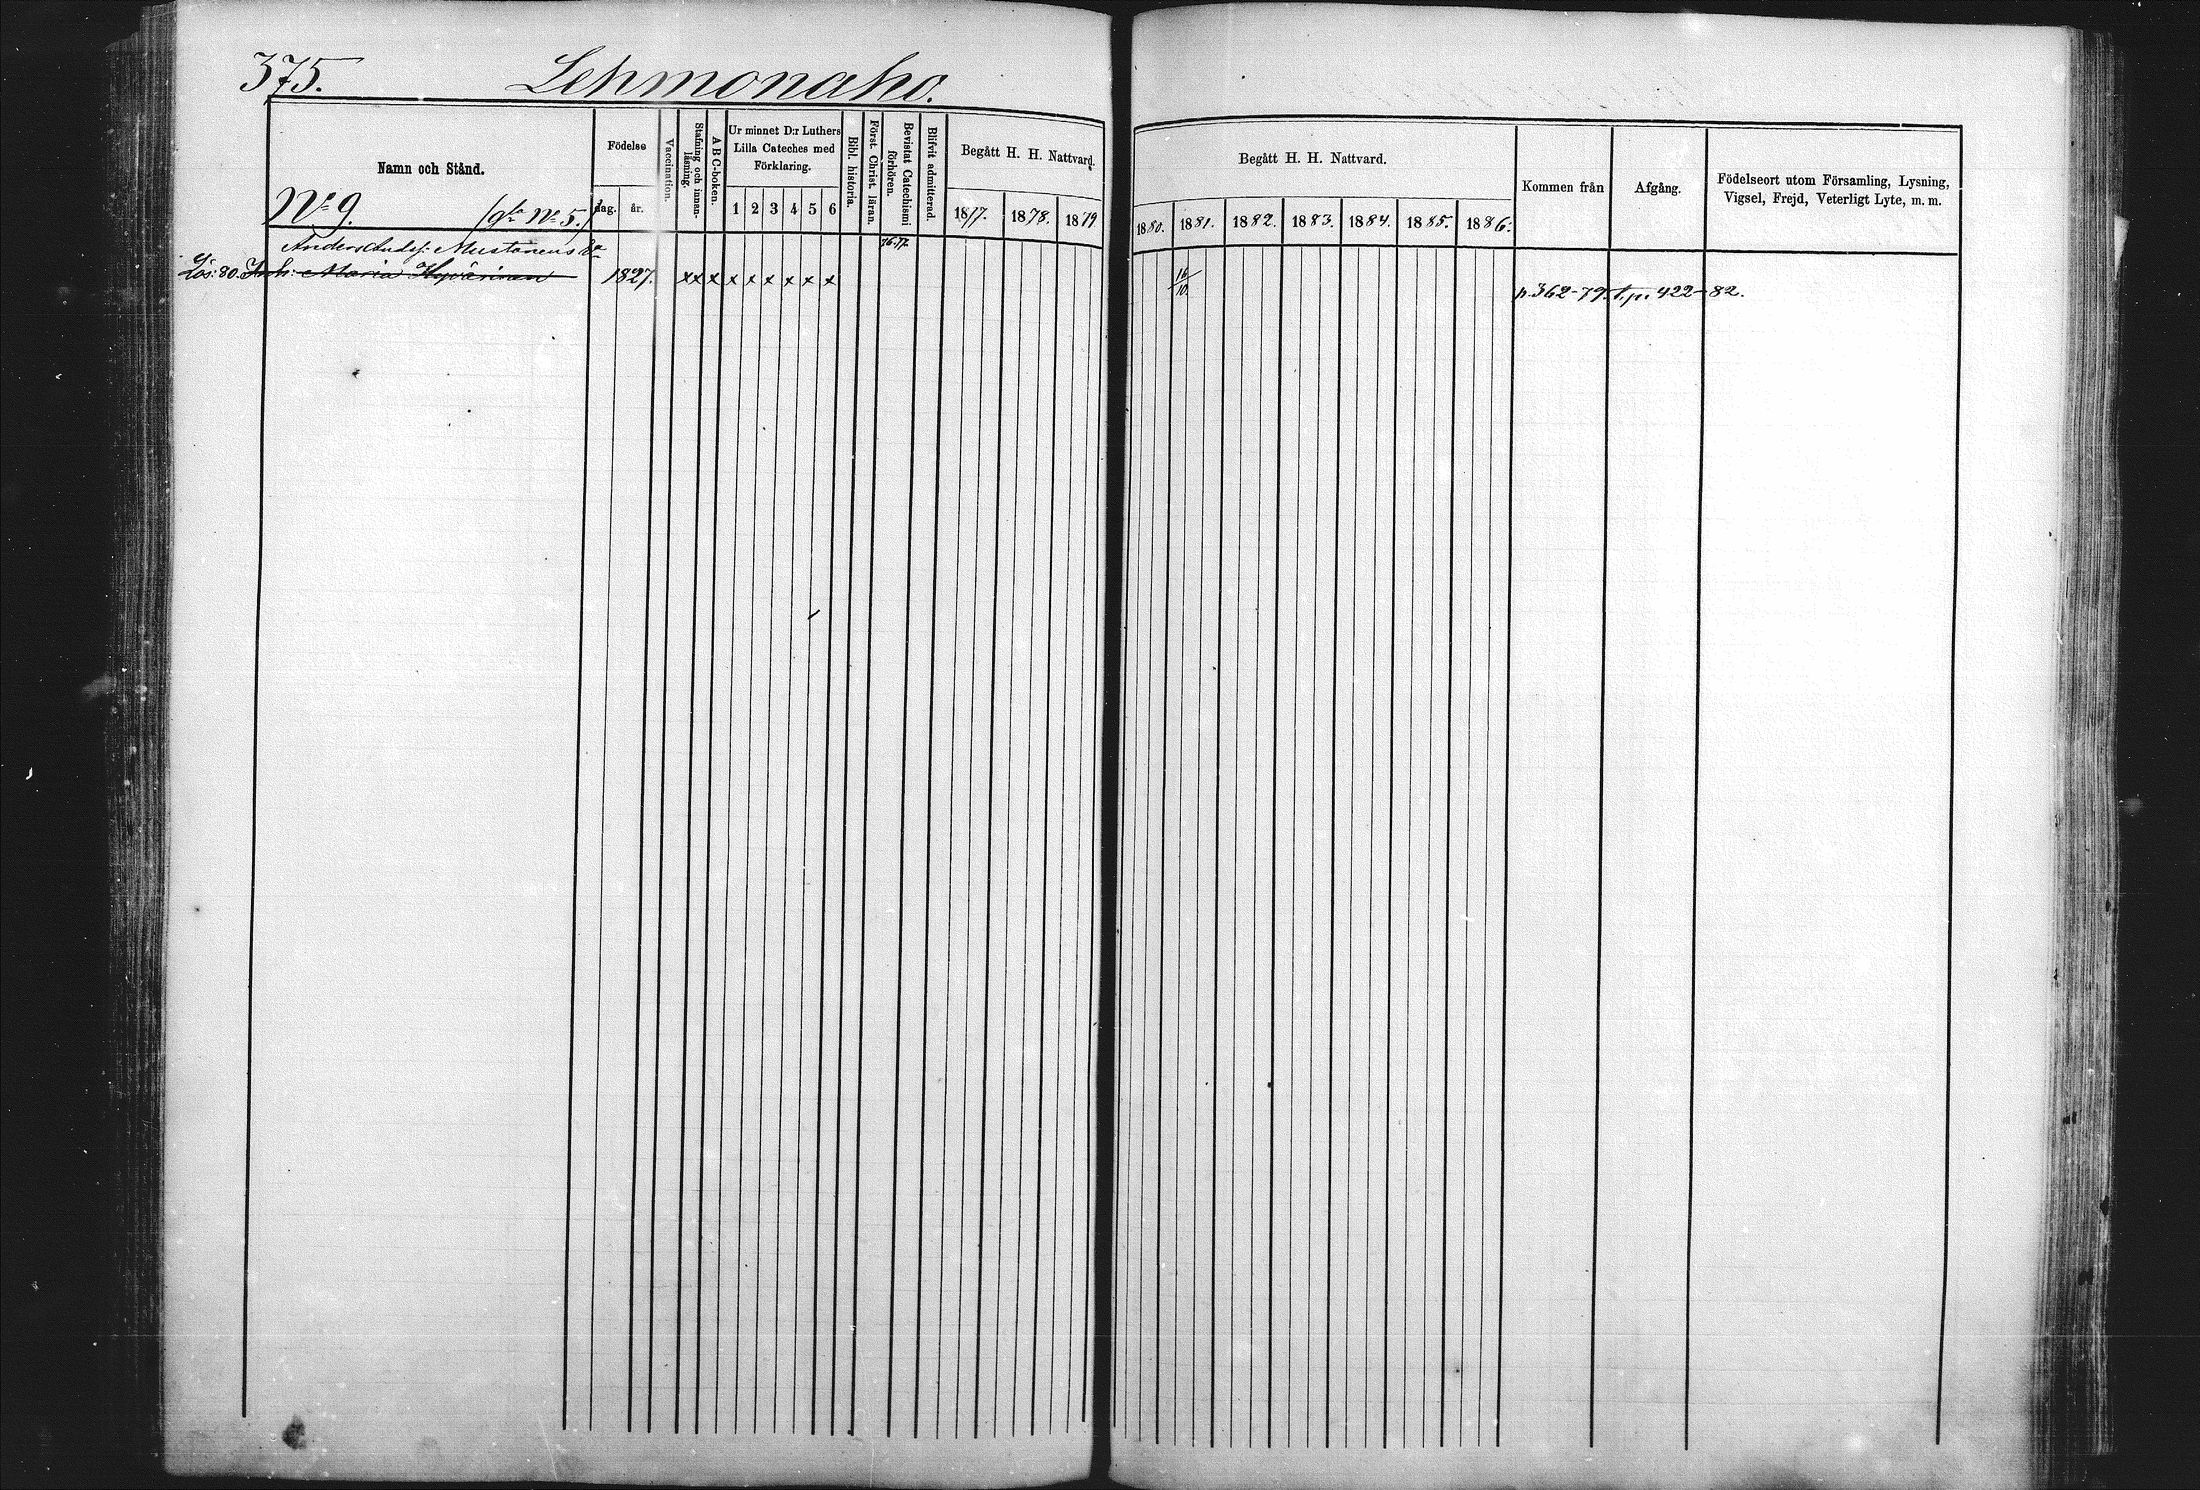 375. Lehmonaho.
Namn och Stånd.
Födelse
dag. år.
Vaccination.
Stafning och innanläsning.
A B C-boken.
Ur minnet D:r Luthers Lilla Cateches med Förklaring.
1 2 3 4 5 6
Bibl. historia.
Först. Christ. läran.
Bevistat Catechismi förhören.
Blifvit admitterad.
Begått H. H. Nattvard.
1877. 1878. 1879
Begått H. H. Nattvard.
1880. 1881. 1882. 1883. 1884. 1885. 1886.
Kommen från
Afgång.
Födelseort utom Församling, Lysning, Vigsel, Frejd, Veterligt Lyte, m. m.
No 9. No 5.
Anders Mustonens 76.77.
Lös: 80. Inh: Maria Hyvärinen 1827. xx x x x x x x x 16/10. p. 362-79. t. p. 422-82.